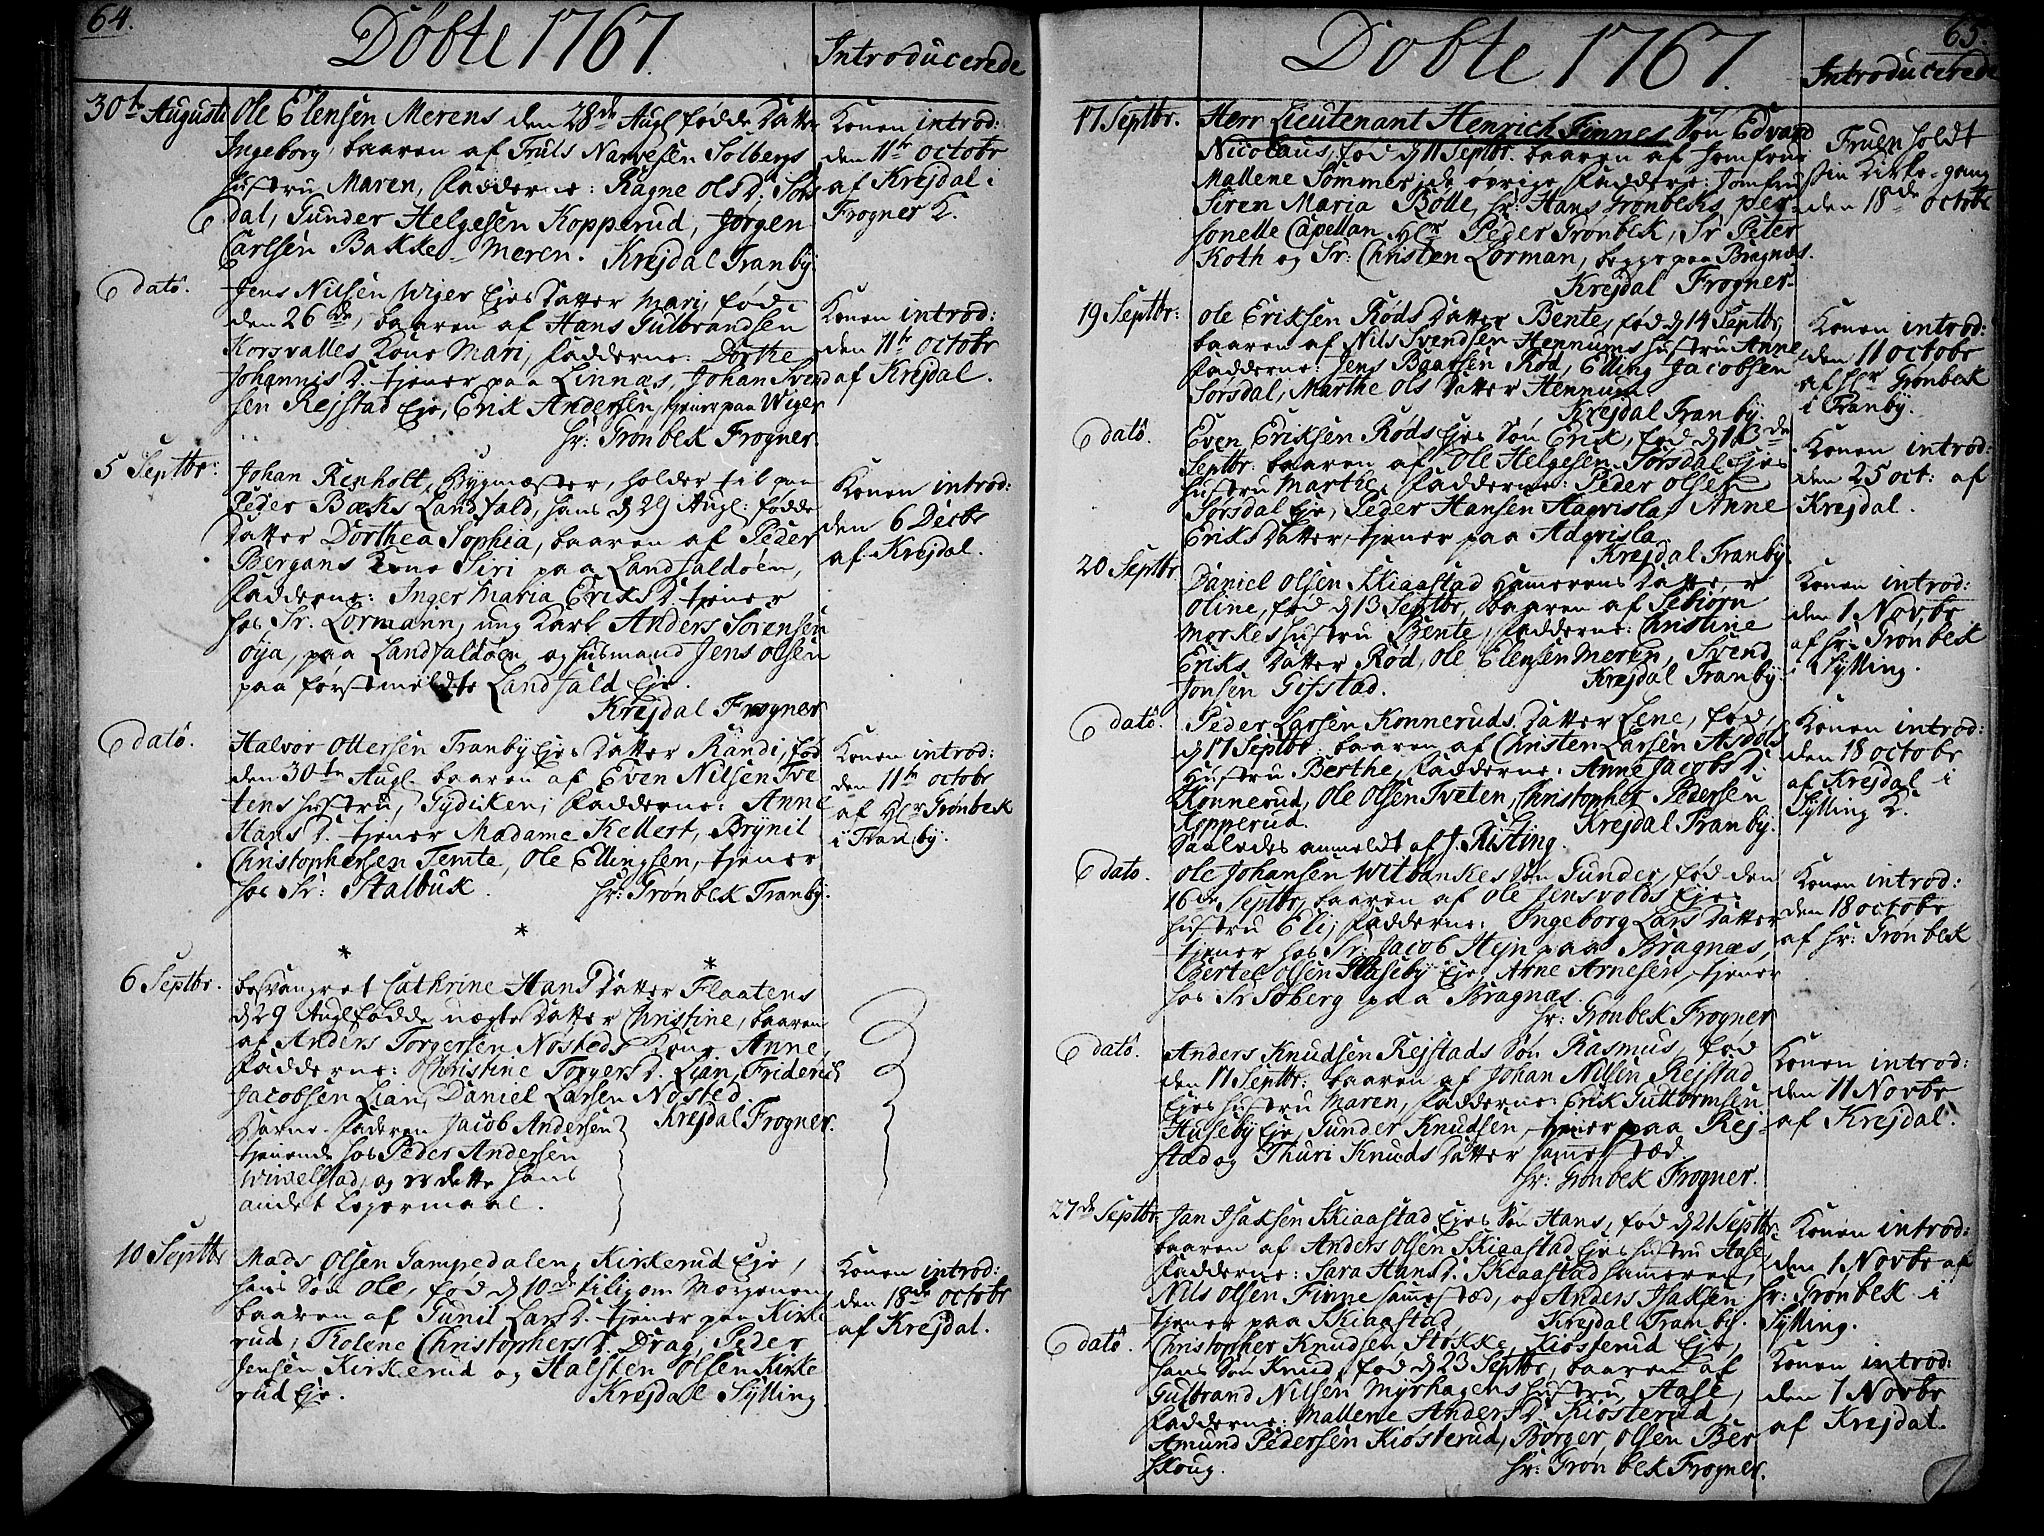 64.
Døbte 1767.
Introducerede
30te Augusti
Ole Elensen Merens den 28de Augl fødde Datter
Ingeborg, baaren af Truls Narvesen Solbergs
Hustru Maren, Fadderne: Ragne Ols D. Sørs
dal, Gunder Helgesen Kopperud, Jørgen
Carlsen Bakke-Meren. Krejdal Tranby
Konen introd:
den 11te octobr
af Krejdal i
Frogner K.
dato.
Jens Nilsen Wiger Ejes Datter Mari, fød
den 26de, baaren af Hans Gulbrandsen
Korsvalles Kone Mari, Fadderne: Dorthe
Johannis D. tjener paa Linnæs, Johan Svend
sen Rejstad Eje, Erik Andersen, tjener paa Wiger
Hr: Grønbek Frogner
Konen introd:
den 11te Octobr
af Krejdal.
5 Septbr:
Johan Renholt, Bygmæster, holder til paa
Peder Bæks Landfald, hans d 29 Augl: fødde
Datter Dorthea Sophia, baaren af Peder
Bergans Kone Siri paa Landfaldøen,
Fadderne: Inger Maria Eriks D. tjener
hos Sr. Lormann, ung Karl Anders Sørensen
Øya, paa Landfaldøen og Husmand Jens Olsen
paa først meldte Landfald Eje.
Krejdal Frogner
Konen introd:
den 6 Decbr
af Krejdal.
dato.
Halvor Ottersen Tranby Ejes Datter Randi, fød
den 30te Augl. baaren af Even Nilsen Tve
tens Hustru, Gydiken, Fadderne: Anne
Hans D. tjener Madame Kellert, Brynil
Christophersen Temte, Ole Ellingsen, tjener
hos Sr: Stalbuk. Hr: Grønbek Tranby.
Konen introd:
den 11te octobr
af Hr Grønbek
i Tranby.
* * *
6 Septbr.
besvangret Cathrine Hans Datter Flaatens
d 29 Augl fødde uægte Datter Christine, baaren
af Anders Torgersen Nøsteds Kone Anne
Fadderne: Christine Torgers D. Lian, Friderich
Jacobsen Lian, Daniel Larsen Nøsted
Krejdal Frogner.
Barne-Faderen Jacob Andersen
tjenende hos Peder Andersen
Wiwelstad, og er dette hans
andet Lejermaal.
10 Septbr
Mads Olsen Gampedalen, Kirkerud Eje,
hans Søn Ole, fød d 10de tilig om Morgenen
baaren af Gunil Lars D. tjener paa Kirke
rud, Tholene Christophers D. Drag, Peder
Jensen Kirkerud og Halsten Olsen Kirke
rud Eje. Krejdal Sylling
Konen introd:
den 18de octobr
af Krejdal.
65.
Døbte 1767.
Introducerede
17 Septbr.
Herr Lieutenant Henrich Finnes Søn Edvard
Nicolaus, fød d 11 Septbr. baaren af Jomfrue
Mallene Sommer, de øvrige Fadderne: Jomfrue
Siren Maria Bolle, Hr: Hans Grønbechs per-
sonelle Capellan, Hr Peder Grønbek, Sr Peter
Koth og Sr: Christen Lorman, begge paa Bragnæs.
Krejdal Frogner.
Fruen holdt
sin Kirke-gang
den 18de octobr
19 Septbr:
Ole Eriksen Røds Datter Bente, fød d 14 Septbr,
baaren af Nils Svendsen Hennums Hustru Anne
Fadderne: Jens Baarsen Rød, Elling Jacobsen
Sørsdal, Marthe Ols Datter Hennum.
Krejdal Tranby.
Konen introd:
den 11 octobr
af Hr Grønbek
i Tranby.
dato.
Even Eriksen Røds Ejes Søn Erik, fød d 13de
Septbr. baaren af Ole Helgesen Sørsdal Ejes
Hustru Marthe, Fadderne: Peder Olsen
Sørsdal Eje, Peder Hansen Aagrisla, Anne
Eriks Datter, tjener paa Adgrisla.
Krejdal Tranby
Konen introd:
den 25 oct: af
Krejdal.
20 Septbr
Daniel Olsen Skiaastad Hamerens Datter
Oline, fød d 13 Septbr, baaren af Sebiørn
Mørkes Hustru Bente, Fadderne: Christine
Eriks Datter Rød, Ole Elensen Meren, Svend
Jonsen Gifstad. Krejdal Tranby
Konen introd:
den 1 Novbr
af Hr: Grønbek
i Sylling.
dato.
Peder Larsen Konneruds Datter Lene, fød
d 17 Septbr: baaren af Christen Larsen Asdøls
Hustru Berthe, Fadderne: Anne Jacobs D.
Konnerud, Ole Olsen Tveten, Christopher Pedersen
Kopperud. Krejdal Tranby.
Saaledes anmeldt af J. Risting.
Konen introd:
den 18 octobr
af Krejdal i
Sylling K.
dato.
Ole Johansen Witbankes Søn Gunder, fød den
16de Septbr, baaren af Ole Jensvolds Ejes
Hustru Eli, Fadderne: Ingeborg Lars Datter
tjener hos Sr: Jacob Heyn paa Bragnæs,
Bertel Olsen Huseby Eje, Arne Arnesen, tjener
hos Sr Soberg paa Bragnæs.
Hr: Grønbek Frogner
Konen introd:
den 18 octobr
af Hr: Grønbek
dato.
Anders Knudsen Rejstads Søn Rasmus, fød
den 17 Septbr: baaren af Johan Nilsen Rejstad
Ejes Hustru Maren, Fadderne: Erik Guttormsen
Huseby Eje, Gunder Knudsen, tjener paa Rej-
stad og Thuri Knuds Datter sammested.
Hr: Grønbek Frogner.
Konen introd:
den 11 Novbr
af Krejdal.
27de Septbr.
Jan Isaksen Skiaastad Ejes Søn Hans, fød d 21 Septbr
baaren af Anders Olsen Skiaastad Ejes Hustru Aase,
Fadderne: Sara Hans D. Skiaastad Hameren,
Nils Olsen Finne sammested, og Anders Isaksen
tjener paa Skiaastad, Krejdal Tranby.
Konen introd:
den 1 Novbr af
Hr: Grønbek i
Sylling.
dato.
Christopher Knudsen Stokke, Kiøsterud Eje,
hans Søn Knud, fød d 23 Septbr, baaren af
Gulbrand Nilsen Myrhagens Hustru, Aase,
Fadderne: Mallene Anders D. Kiøsterud,
Amund Pedersen Kiøsterud, Børger Olsen Ber
skoug. Hr: Grønbek Frogner.
Konen introd:
den 1 Novbr
af Krejdal.